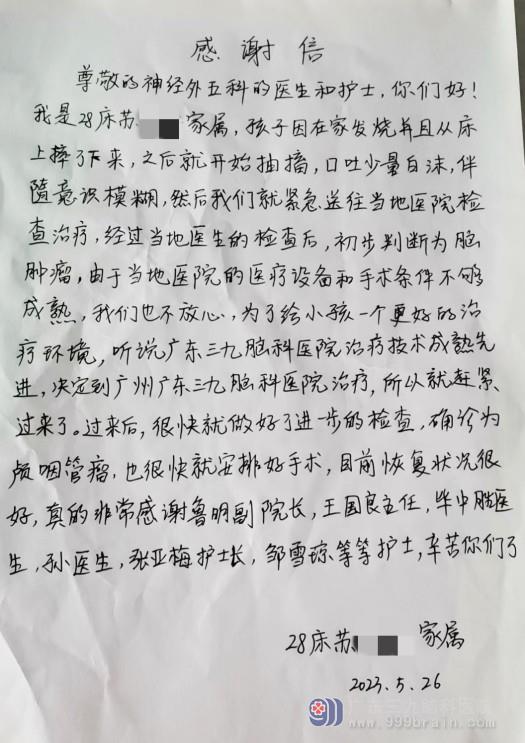 感谢信
尊敬的神经外五科的医生和护士，你们好！
我是28床苏 家属，孩子因在家发烧并且从床
上摔了下来，之后就开始抽搐，口吐少量白沫，伴
随意识模糊，然后我们就紧急送往当地医院检
查治疗，经过当地医生的检查后，初步判断为脑
肿瘤，由于当地医院的医疗设备和手术条件不够
成熟，我们也不放心，为了给小孩一个更好的治
疗环境，听说广东三九脑科医院治疗技术成熟先
进，决定到广州广东三九脑科医院治疗，所以就赶紧
过来了。过来后，很快就做好了进步的检查，确诊为
颅咽管瘤，也很快就安排好手术，目前恢复状况很
好，真的非常感谢鲁明副院长，王国良主任，毕中胜医
生，孙医生，张亚梅护士长，邹雪琼等等护士，辛苦你们了
28床苏 家属
2023.5.26
广东三九脑科医院
www.999brain.com